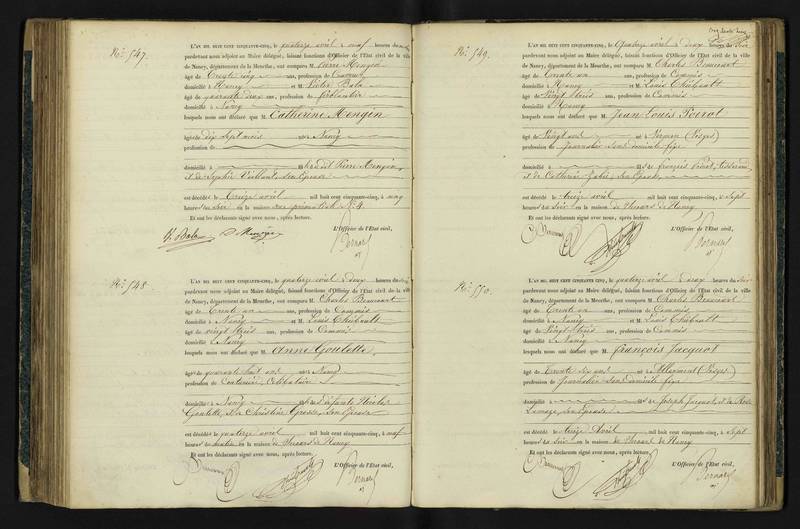 N.º 547.
L'AN MIL HUIT CENT CINQUANTE-CINQ, le quatorze avril à neuf heures du
pardevant nous adjoint au Maire délégué, faisant fonctions d'Officier de l'Etat civil de la ville
de Nancy, département de la Meurthe, ont comparu M. Pierre Mengin
âgé de trente cinq ans, profession de
domicilié à Nancy et M. Victor Bala
âgé de quarante deux ans, profession de
domicilié à Nancy
lesquels nous ont déclaré que M. Catherine Mengin
âgé de dix sept mois né à Nancy
profession de
domicilié à fils dudit Pierre Mengin
et de Sophie son épouse
est décédé le treize avril mil huit cent cinquante-cinq, à cinq
heures du soir en la maison rue primatiale N.º 4
Et ont les déclarants signé avec nous, après lecture.
V. Bala P. Mengin L'Officier de l'Etat civil,
Bernard
N.º 548
L'AN MIL HUIT CENT CINQUANTE-CINQ, le quatorze avril à deux heures du soir
pardevant nous adjoint au Maire délégué, faisant fonctions d'Officier de l'Etat civil de la ville
de Nancy, département de la Meurthe, ont comparu M. Charles Beaucourt
âgé de trente un ans, profession de Commis
domicilié à Nancy et M. Louis Thiébault
âgé de vingt trois ans, profession de Commis
domicilié à Nancy
lesquels nous ont déclaré que M. Anne Goulette
âgé de quarante huit ans né à Nancy
profession de Couturière, Célibataire
domicilié à Nancy fils des défunts Nicolas
Goulette, et de Christine son épouse
est décédé le quatorze avril mil huit cent cinquante-cinq, à neuf
heures du matin en la maison de Secours de Nancy
Et ont les déclarants signé avec nous, après lecture.
L'Officier de l'Etat civil,
Bernard
N.º 549.
L'AN MIL HUIT CENT CINQUANTE-CINQ, le quatorze avril à deux heures du soir
pardevant nous adjoint au Maire délégué, faisant fonctions d'Officier de l'Etat civil de la ville
de Nancy, département de la Meurthe, ont comparu M. Charles Beaucourt
âgé de trente un ans, profession de Commis
domicilié à Nancy et M. Louis Thiébault
âgé de vingt trois ans, profession de Commis
domicilié à Nancy
lesquels nous ont déclaré que M. Jean Louis Poirot
âgé de vingt ans né à (Vosges)
profession de journalier sans domicile fixe
domicilié à fils de françois Poirot, tisserand
et de Catherine son épouse
est décédé le treize avril mil huit cent cinquante-cinq, à sept
heures du soir en la maison de Secours de Nancy
Et ont les déclarants signé avec nous, après lecture.
L'Officier de l'Etat civil,
Bernard
N.º 550.
L'AN MIL HUIT CENT CINQUANTE-CINQ, le quatorze avril à deux heures du soir
pardevant nous adjoint au Maire délégué, faisant fonctions d'Officier de l'Etat civil de la ville
de Nancy, département de la Meurthe, ont comparu M. Charles Beaucourt
âgé de trente un ans, profession de Commis
domicilié à Nancy et M. Louis Thiébault
âgé de vingt trois ans, profession de Commis
domicilié à Nancy
lesquels nous ont déclaré que M. françois Jacquot
âgé de trente six ans né à Allarmont (Vosges)
profession de journalier sans domicile fixe
domicilié à fils de Joseph Jacquot, et de Rose
son épouse
est décédé le treize Avril mil huit cent cinquante-cinq, à sept
heures du soir en la maison de Secours de Nancy
Et ont les déclarants signé avec nous, après lecture.
L'Officier de l'Etat civil,
Bernard